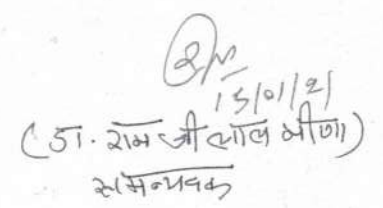 15/01/21
(डा. राम जी लाल मीणा)
समन्वयक